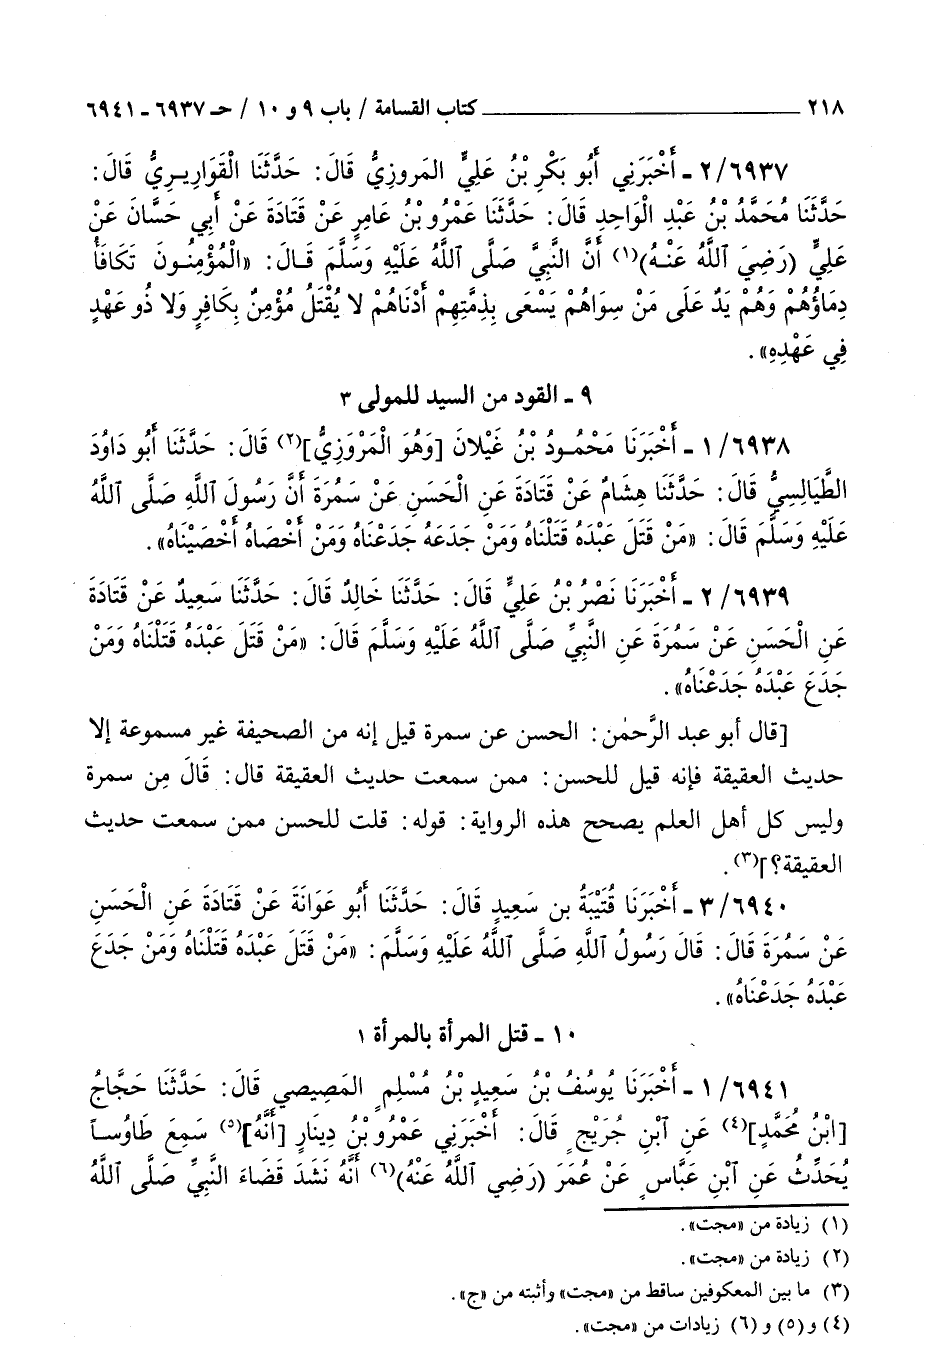 ٢١٨ ــــــــــــــــــ كتاب القسامة / باب ٩ و ١٠ / حـ ٦٩٣٧ ـ ٦٩٤١
٢/٦٩٣٧ ـ أَخْبَرَنِي أَبُو بَكْرِ بْنُ عَلِيٍّ المَروزِيُّ قَالَ: حَدَّثَنَا الْقَوَارِيرِيُّ قَالَ:
حَدَّثَنَا مُحَمَّدُ بْنُ عَبْدِ الْوَاحِدِ قَالَ: حَدَّثَنَا عَمْرُو بْنُ عَامِرٍ عَنْ قَتَادَةَ عَنْ أَبِي حَسَّانَ عَنْ
عَلِيٍّ (رَضِيَ اللَّهُ عَنْهُ)(١) أَنَّ النَّبِيَّ صَلَّى اللَّهُ عَلَيْهِ وَسَلَّمَ قَالَ: «الْمُؤْمِنُونَ تَكَافَأُ
دِمَاؤُهُمْ وَهُمْ يَدٌ عَلَى مَنْ سِوَاهُمْ يَسْعَى بِذِمَّتِهِمْ أَدْنَاهُمْ لا يُقْتَلُ مُؤْمِنٌ بِكَافِرٍ وَلا ذُو عَهْدٍ
فِي عَهْدِهِ».
٩ ـ القود من السيد للمولى ٣
١/٦٩٣٨ ـ أَخْبَرَنَا مَحْمُودُ بْنُ غَيْلانَ [وَهُوَ الْمَرْوَزِيُّ](٢) قَالَ: حَدَّثَنَا أَبُو دَاوُدَ
الطَّيَالِسِيُّ قَالَ: حَدَّثَنَا هِشَامٌ عَنْ قَتَادَةَ عَنِ الْحَسَنِ عَنْ سَمُرَةَ أَنَّ رَسُولَ اللَّهِ صَلَّى اللَّهُ
عَلَيْهِ وَسَلَّمَ قَالَ: «مَنْ قَتَلَ عَبْدَهُ قَتَلْنَاهُ وَمَنْ جَدَعَهُ جَدَعْنَاهُ وَمَنْ أَخْصَاهُ أَخْصَيْنَاهُ».
٢/٦٩٣٩ ـ أَخْبَرَنَا نَصْرُ بْنُ عَلِيٍّ قَالَ: حَدَّثَنَا خَالِدٌ قَالَ: حَدَّثَنَا سَعِيدٌ عَنْ قَتَادَةَ
عَنِ الْحَسَنِ عَنْ سَمُرَةَ عَنِ النَّبِيِّ صَلَّى اللَّهُ عَلَيْهِ وَسَلَّمَ قَالَ: «مَنْ قَتَلَ عَبْدَهُ قَتَلْنَاهُ وَمَنْ
جَدَعَ عَبْدَهُ جَدَعْنَاهُ».
[قال أبو عبد الرَّحمٰن: الحسن عن سمرة قيل إنه من الصحيفة غير مسموعة إلا
حديث العقيقة فإنه قيل للحسن: ممن سمعت حديث العقيقة قال: قَالَ مِن سمرة
وليس كل أهل العلم يصحح هذه الرواية: قوله: قلت للحسن ممن سمعت حديث
العقيقة؟](٣).
٣/٦٩٤٠ ـ أَخْبَرَنَا قُتَيْبَةُ بن سَعِيدٍ قَالَ: حَدَّثَنَا أَبُو عَوَانَةَ عَنْ قَتَادَةَ عَنِ الْحَسَنِ
عَنْ سَمُرَةَ قَالَ: قَالَ رَسُولُ اللَّهِ صَلَّى اللَّهُ عَلَيْهِ وَسَلَّمَ: «مَنْ قَتَلَ عَبْدَهُ قَتَلْنَاهُ وَمَنْ جَدَعَ
عَبْدَهُ جَدَعْنَاهُ».
١٠ ـ قتل المرأة بالمرأة ١
١/٦٩٤١ ـ أَخْبَرَنَا يُوسُفُ بْنُ سَعِيدِ بْنُ مُسْلِمٍ المَصِيصِي قَالَ: حَدَّثَنَا حَجَّاجُ
[ابْنُ مُحَمَّدٍ](٤) عَنِ ابْنِ جُرَيْجٍ قَالَ: أَخْبَرَنِي عَمْرُو بْنُ دِينَارٍ [أَنَّهُ](٥) سَمِعَ طَاوُساً
يُحَدِّثُ عَنِ ابْنِ عَبَّاسٍ عَنْ عُمَرَ (رَضِي اللَّهُ عَنْهُ)(٦) أَنَّهُ نَشَدَ قَضَاءَ النَّبِيِّ صَلَّى اللَّهُ
(١) زيادة من «مجت».
(٢) زيادة من «مجت».
(٣) ما بين المعكوفين ساقط من «مجت» وأثبته من «ج».
(٤) و(٥) و (٦) زيادات من «مجت».